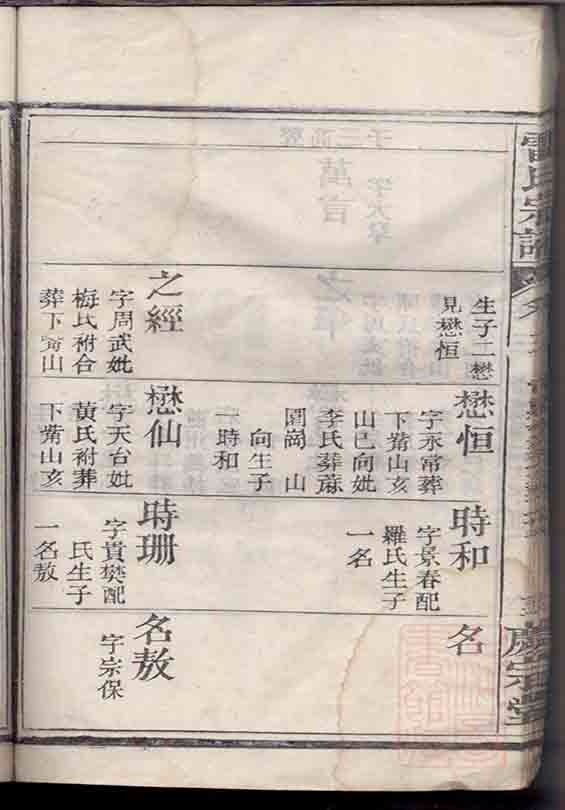 雷氏宗譜
生子二懋
見懋恒
之經
字周武妣
梅氏祔合
葬下
山
懋恒
字永常葬
下觜山亥
山巳向妣
李氏葬蔴
園崗 山
向生子
一時和
懋仙
字天台妣
黃氏祔葬
下觜山亥
時和
字景春配
羅氏生子
一名
時珊
字貫樊配
氏生子
一名敖
名
名敖
字宗保